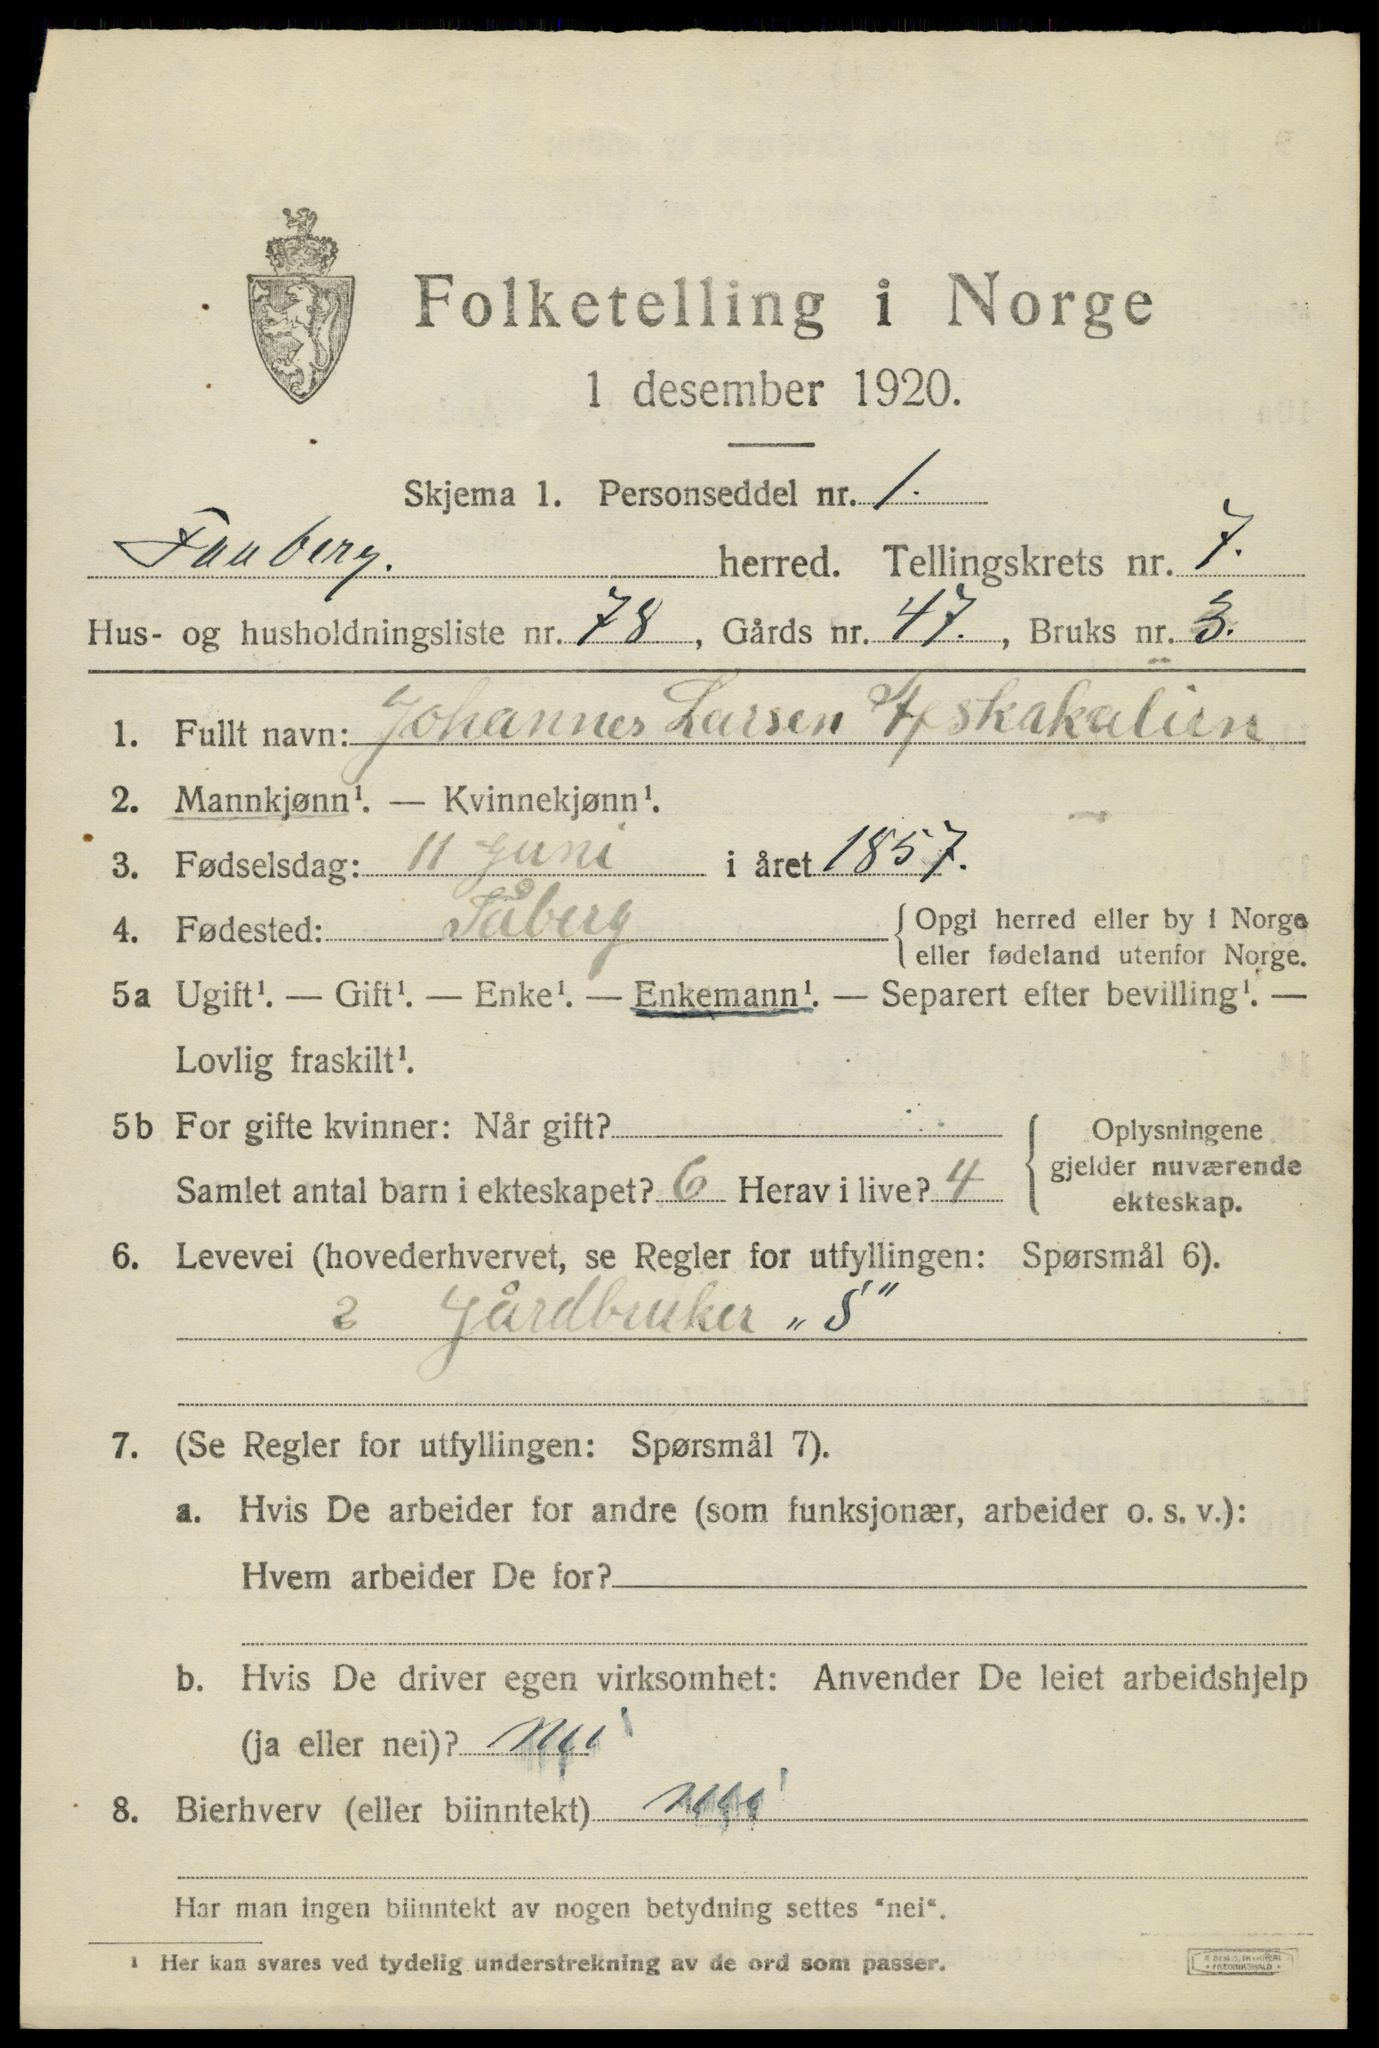 Folketelling i Norge
1 desember 1920.
Skjema 1. Personseddel nr. 1.
Faaberg. herred. Tellingskrets nr. 7.
Hus- og husholdningsliste nr. 78, Gårds nr. 47., Bruks nr. 3.
1. Fullt navn: Johannes Larsen
2. Mannkjønn¹. — Kvinnekjønn¹.
3. Fødselsdag: 11 Juni i året 1857.
4. Fødested: Fåberg { Opgi herred eller by i Norge
eller fødeland utenfor Norge.
5a Ugift¹. — Gift¹. — Enke¹. — Enkemann¹. — Separert efter bevilling¹. —
Lovlig fraskilt¹.
5b For gifte kvinner: Når gift?
Samlet antal barn i ekteskapet? 6 Herav i live? 4
Oplysningene
gjelder nuværende
ekteskap.
6. Levevei (hovederhvervet, se Regler for utfyllingen: Spørsmål 6).
2 Gårdbruker „S"
7. (Se Regler for utfyllingen: Spørsmål 7).
a. Hvis De arbeider for andre (som funksjonær, arbeider o. s. v.):
Hvem arbeider De for?
b. Hvis De driver egen virksomhet: Anvender De leiet arbeidshjelp
(ja eller nei)? Nei
8. Bierhverv (eller biinntekt) nei
Har man ingen biinntekt av nogen betydning settes "nei".
¹ Her kan svares ved tydelig understrekning av de ord som passer.